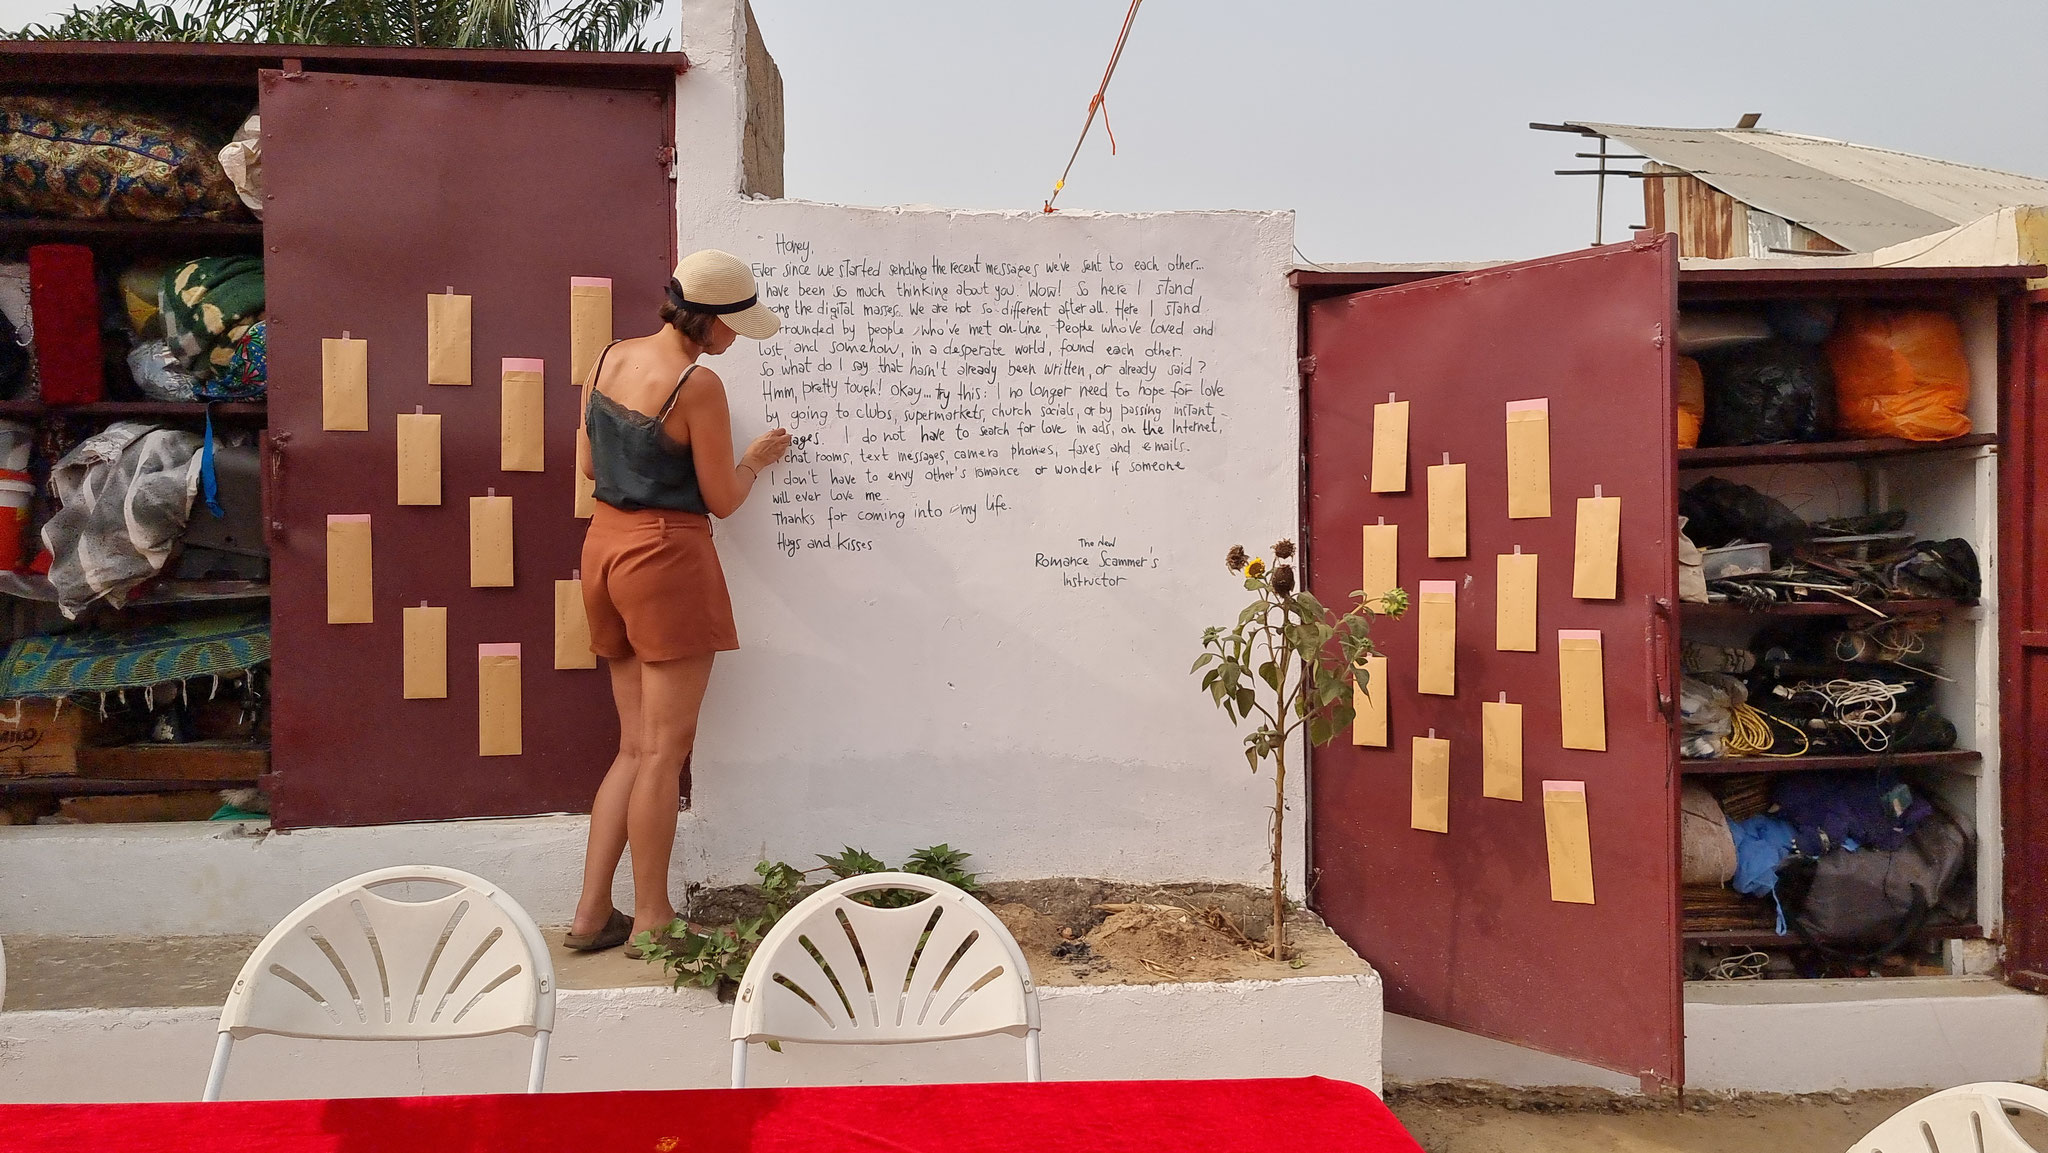 Honey,
Ever since we started sending the recent messages we've sent to each other...
I have been so much thinking about you. Wow! So here I stand
the digital masses. We are not so different after all. Here I stand
by people who've met on-line, People who've loved and
Lost, and somehow, in a desperate world, found each other.
So what do I say that hasn't already been written, or already said?
Hmm, pretty tough! Okay... Try this: I no longer need to hope for love
by going to clubs, supermarkets, church socials, or by passing instant
I do not have to search for love in ads, on the Internet,
chat rooms, text messages, camera phones, faxes and e-mails.
I don't have to envy other's romance or wonder if someone
will ever love me.
Thanks for coming into my life.
Hugs and Kisses
The New
Romance Scammer's
Instructor